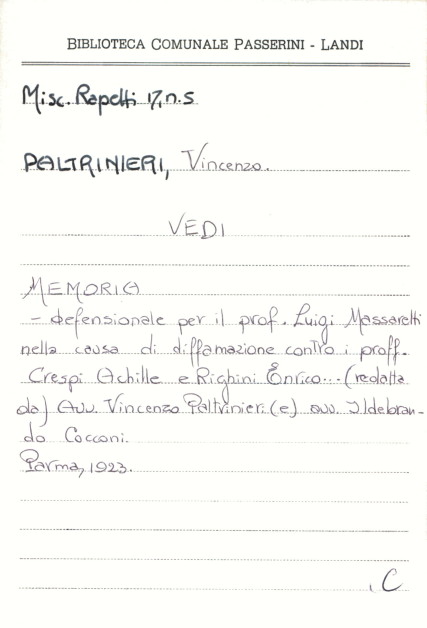 BIBLIOTECA COMUNALE PASSERINI - LANDI
Misc. Rapetti 17, n.5
PALTRINIERI, Vincenzo.
VEDI
MEMORIA
- defensionale per il prof. Luigi Massaretti
nella causa di diffamazione contro i proff.
Crespi Achille e Righini Enrico... (redatta
da) Avv. Vincenzo Paltrinieri (e) avv. Ildebran-
do Cocconi.
Parma, 1923.
C